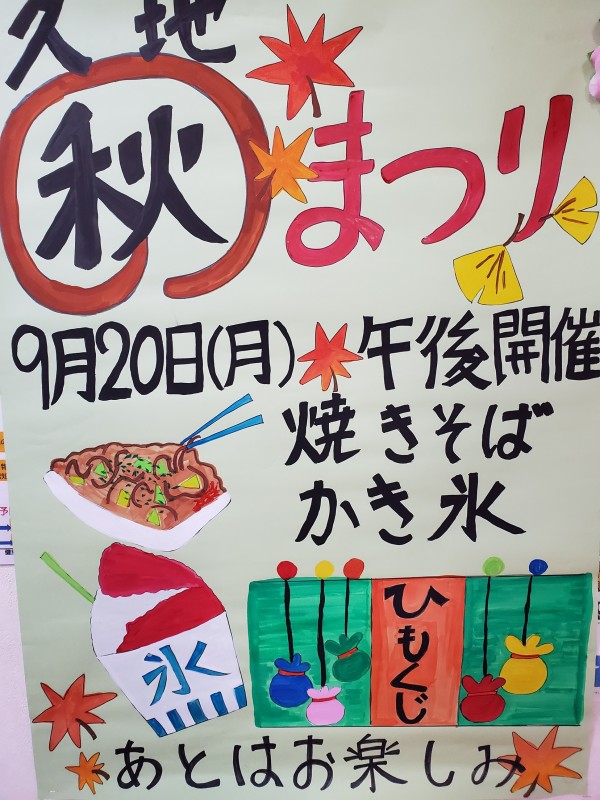 久地
秋まつり
9月20日(月)午後開催
焼きそば
かき氷
氷
ひもくじ
あとはお楽しみ